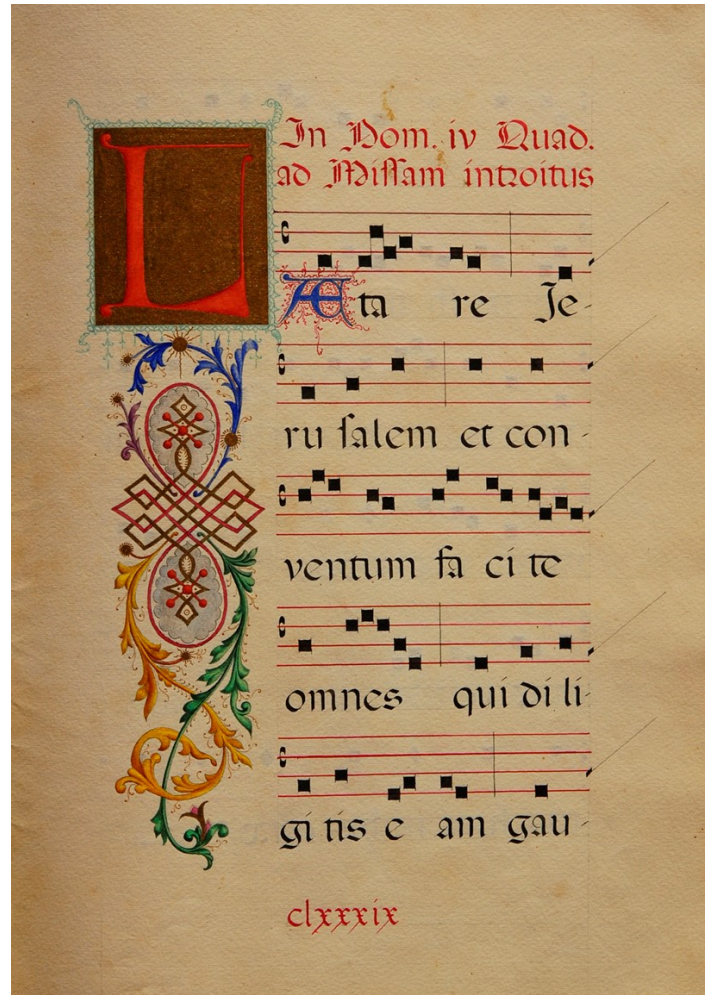 In Dom. iv Quad.
ad Missam introitus
LÆta re Je-
ru salem et con-
ventum fa ci te
omnes qui di li-
gi tis e am gau-
clxxxix